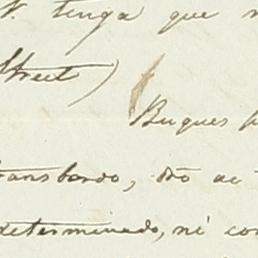 tenga que
Street)
Buques
transbordo, ó
determinado, ni con